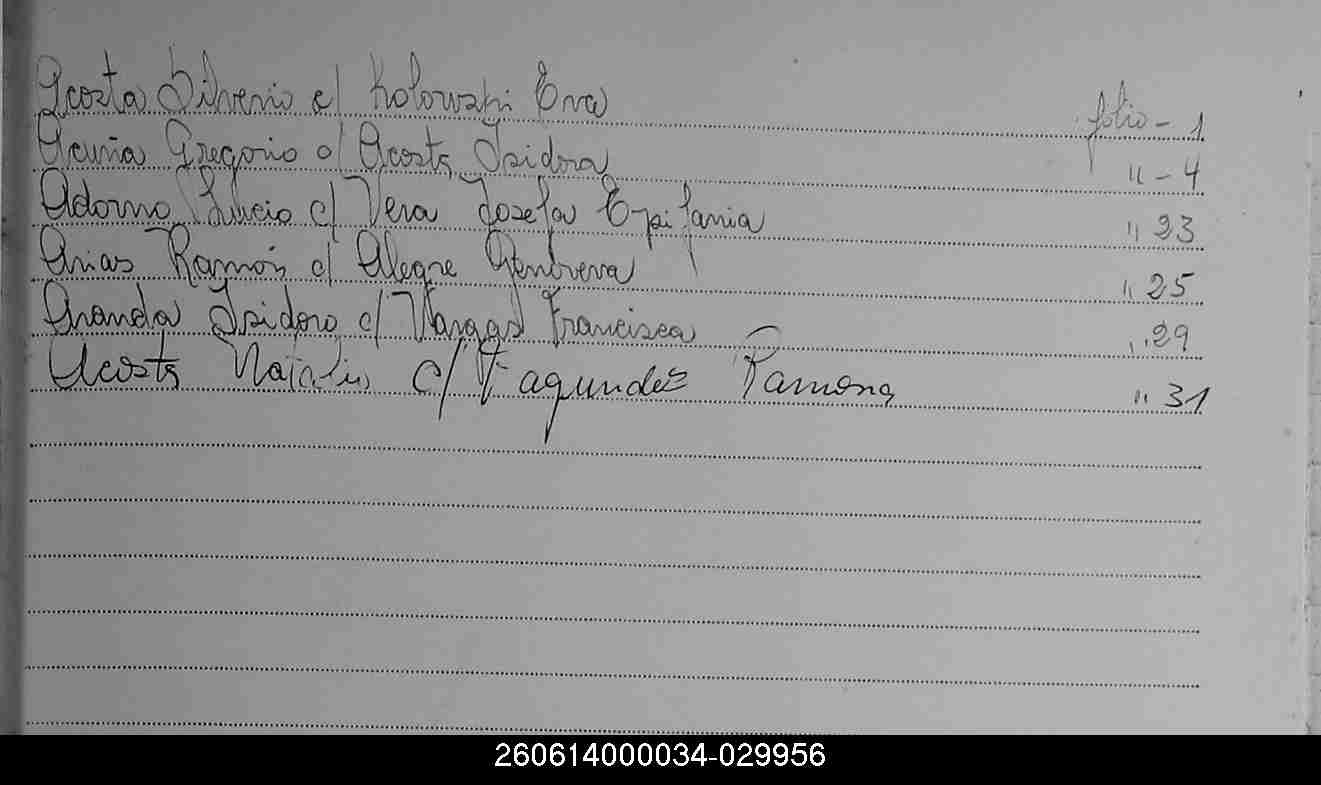 Acosta Silverio c/ Kolowski Eva folio - 1
Acuña Gregorio c/ Acosta Isidora " - 4
Adorno Lucio c/ Vera Josefa Epifania " 23
Arias Ramón c/ Alegre Genoveva " 25
Aranda Isidoro c/ Vargas Francisca " 29
Acosta Natalio c/ Fagundez Ramona " 31
260614000034-029956